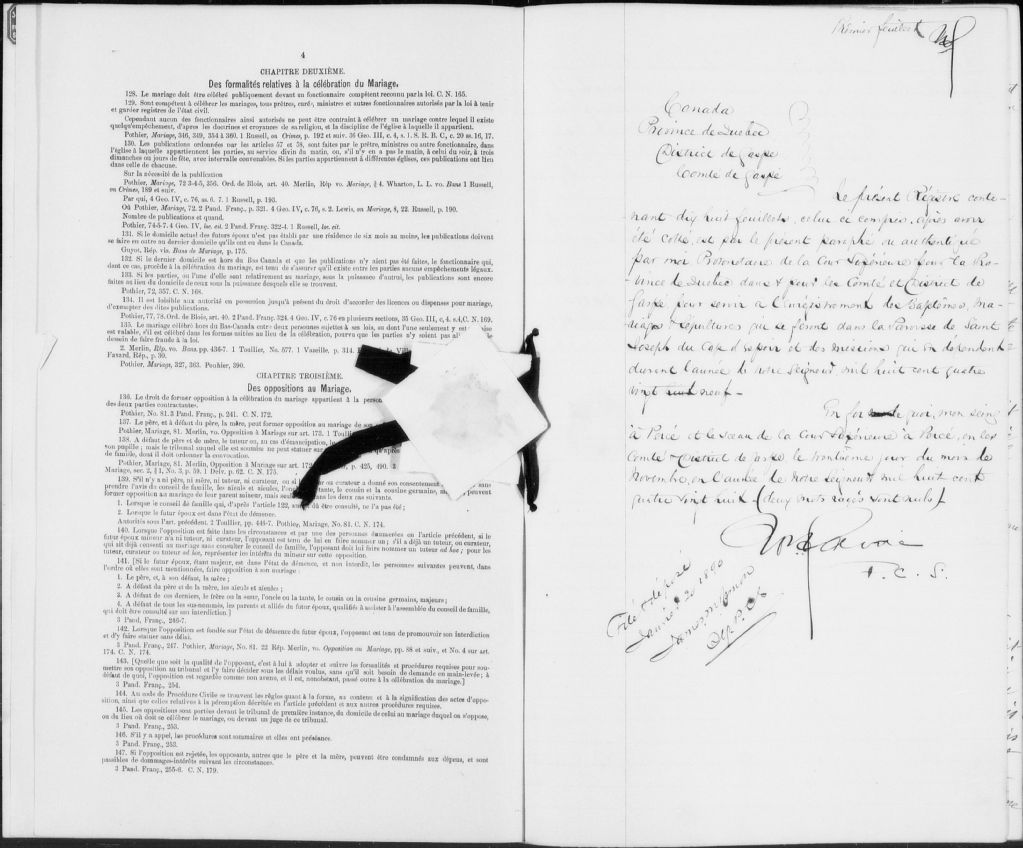 4
CHAPITRE DEUXIÈME.
Des formalités relatives à la célébration du Mariage.
128. Le mariage doit être célébré publiquement devant un fonctionnaire compétent reconnu par la loi. C. N. 165.
129. Sont compétent à célébrer les mariages, tous prêtres, curés, ministres et autres fonctionnaires autorisés par la loi à tenir
et garder registres de l'état civil.
Cependant aucun des fonctionnaires ainsi autorisés ne peut être contraint à célébrer un mariage contre lequel il existe
quelqu'empêchement, d'après les doctrines et croyances de sa religion, et la discipline de l'église à laquelle il appartient.
Pothier, Mariage, 346, 349, 354 à 360. 1 Russell, on Crimes, p. 192 et suiv. 36 Geo. III, c. 4, s. 1. S. R. B. C., c. 20 ss. 16, 17.
130. Les publications ordonnées par les articles 57 et 58, sont faites par le prêtre, ministre ou autre fonctionnaire, dans
l'église à laquelle appartiennent les parties, au service divin du matin, ou, s'il n'y en a pas le matin, à celui du soir, à trois
dimanches ou jours de fête, avec intervalle convenables. Si les parties appartiennent à différentes églises, ces publications ont lieu
dans celle de chacune.
Sur la nécessité de la publication
Pothier, Mariage, 72 3-4-5, 356. Ord. de Blois, art. 40. Merlin, Rép vo. Mariage, § 4. Wharton, L. L. vo. Bans 1 Russell,
on Crimes, 189 et suiv.
Par qui, 4 Geo. IV, c. 76, ss. 6. 7. 1 Russell, p. 193.
Où Pothier, Mariage, 72. 2 Pand. Franç., p. 321. 4 Geo. IV, c. 76, s. 2. Lewis, on Marriage, 8, 22. Russell, p. 190.
Nombre de publications et quand.
Pothier, 74-5-7. 4 Geo. IV, loc. cit. 2 Pand. Franç. 322-4. 1 Russell, loc. cit.
131. Si le domicile actuel des futurs époux n'est pas établi par une résidence de six mois au moins, les publications doivent
se faire en outre au dernier domicile qu'ils ont eu dans le Canada.
Guyot, Rép. vis. Bans de Mariage, p. 175.
132. Si le dernier domicile est hors du Bas-Canada et que les publications n'y aient pas été faites, le fonctionnaire qui,
dans ce cas, procède à la célébration du mariage, est tenu de s'assurer qu'il existe entre les parties aucuns empêchements légaux.
133. Si les parties, ou l'une d'elles sont relativement au mariage, sous la puissance d'autrui, les publications sont encore
faites au lieu du domicile de ceux sous la puissance desquels elle se trouvent.
Pothier, 72, 357. C. N. 168.
134. Il est loisible aux autorité en possession jusqu'à présent du droit d'accorder des licences ou dispenses pour mariage,
d'exempter des dites publications.
Pothier, 77, 78. Ord. de Blois, art. 40. 2 Pand. Franç. 324. 4 Geo. IV, c. 76 en plusieurs sections, 35 Geo. III, c, 4. s.4, C. N. 169.
135. Le mariage célébré hors du Bas-Canada entre deux personnes sujettes à ses lois, ou dont l'une seulement y est
est valable, s'il est célébré dans les formes usitées au lieu de la célébration, pourvu que les parties n'y soient pas
dessein de faire fraude à la loi.
2. Merlin, Rép. vo. Bans, pp. 436-7. 1 Toullier, No. 577. 1 Vazeille, p. 314.
Favard, Rép., p. 30.
Pothier, Mariage, 327, 363. Pouhier, 390.
CHAPITRE TROISIÈME.
Des oppositions au Mariage.
136. Le droit de former opposition à la célébration du mariage appartient à la
des deux parties contractantes.
Pothier, No. 81. 3 Pand. Franç., p. 241. C. N. 172.
137. Le père, et à défaut du père, la mère, peut former opposition au mariage de
Pothier, Mariage, 81. Merlin, vo. Opposition à Mariage sur art. 173. 1
138. A défaut de père et de mère, le tuteur ou, au cas d'émancipation,
son pupille ; mais le tribunal auquel elle est soumise ne peut statuer
de famille, dont il doit ordonner la convocation.
Pothier, Mariage, 81. Merlin, Opposition à Mariage sur art. 172 p. 425, 490.
Mariage, sec. 2, § 1, No. 3, p. 59. 1 Delv. p. 62. C. N. 175.
139. S'il n'y a ni père, ni mère, ni tuteur, ni curateur, ou si ou curateur a donné son consentement
prendre l'avis du conseil de famille, les aïeuls et aïeules, l'oncle tante, le cousin et la cousine germains, peuvent
former opposition au mariage de leur parent mineur, mais dans les deux cas suivants.
1. Lorsque le conseil de famille qui, d'après l'article 122, aurait dû être consulté, ne l'a pas été ;
2. Lorsque le futur époux est dans l'état de démence.
Autorités sous l'art. précédent. 2 Toullier, pp. 446-7. Pothier, Mariage, No. 81. C. N. 174.
140. Lorsque l'opposition est faite dans les circonstances et par une des personnes énumérées en l'article précédent, si le
futur époux mineur n'a ni tuteur, ni curateur, l'opposant est tenu de lui en faire nommer un ; s'il a déjà un tuteur, ou curateur,
qui ait déjà consenti au mariage sans consulter le conseil de famille, l'opposant doit lui faire nommer un tuteur ad hoc ; pour les
tuteur, curateur ou tuteur ad hoc, représenter les intérêts du mineur sur cette opposition.
141. [Si le futur époux, étant majeur, est dans l'état de démence, et non interdit, les personnes suivantes peuvent, dans
l'ordre où elles sont mentionnées, faire opposition à son mariage :
1. Le père, et, à son défaut, la mère ;
2. A défaut du père et de la mère, les aïeuls et aïeules ;
3. A défaut de ces derniers, le frère ou la sœur, l'oncle ou la tante, le cousin ou la cousine germains, majeurs ;
4. A défaut de tous les sus-nommés, les parents et alliés du futur époux, qualifiés à assister à l'assemblée du conseil de famille,
qui doit être consulté sur son interdiction.]
3 Pand. Franç., 246-7.
142. Lorsque l'opposition est fondée sur l'état de démence du futur époux, l'opposant est tenu de promouvoir son interdiction
et d'y faire statuer sans délai.
3 Pand. Franç. 247. Pothier, Mariage, No. 81. 22 Rép. Merlin, vo. Opposition au Mariage, pp. 88 et suiv., et No. 4 sur art.
174. C. N. 174.
143. [Quelle que soit la qualité de l'opposant, c'est à lui à adopter et suivre les formalités et procédures requises pour sou-
mettre son opposition au tribunal et l'y faire décider sous les délais voulus, sans qu'il soit besoin de demande en main-levée ; à
défaut de quoi, l'opposition est regardée comme non avenue, et il est, nonobstant, passé outre à la célébration du mariage.]
3 Pand. Franç., 254.
144. Au code de Procédure Civile se trouvent les règles quant à la forme, au contenu et à la signification des actes d'oppo-
sition, ainsi que celles relatives à la péremption décrétée en l'article précédent et aux autres procédures requises.
145. Les oppositions sont portées devant le tribunal de première instance, du domicile de celui au mariage duquel on s'oppose,
ou du lieu où doit se célébrer le mariage, ou devant un juge de ce tribunal.
3 Pand. Franç., 253.
146. S'il y a appel, les procédures sont sommaires et elles ont préséance.
3 Pand. Franç., 253.
147. Si l'opposition est rejetée, les opposants, autres que le père et la mère, peuvent être condamnés aux dépens, et sont
passibles de dommages-intérêts suivant les circonstances.
3 Pand. Franç., 255-6. C. N. 179.
Premier feuillet
Canada
Province de Quebec
District de Gaspé
Comté de Gaspé
Le présent Régistre conte-
nant dix huit feuillets, celui ci compris, après avoir
été cotté, est par le présent paraphé ou authentiqué
par moi Protonotaire de la Cour Supérieure pour la Pro-
vince de Quebec dans & pour les Comté et District de
Gaspé pour servir à l'enregistrement des Baptêmes, Ma-
riages & Sépultures qui se feront dans la Paroisse de Saint
Joseph du Cap d'espoir et des missions qui en dépendent
durant l'année de notre Seigneur mil huit cent quatre
vingt neuf -
En foi de quoi, mon seing
à Percé et le sceau de la Cour Supérieure à Percé, en les
Comté & District de Gaspé le trentième jour du mois de
Novembre en l'année de notre Seigneur mil huit cent
quatre vingt huit (deux mots rayés sont nuls)
P. C. S.
Filé & déposé
Janvier 20 1890